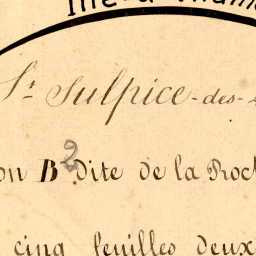 St Sulpice-des-
on B 2 dite de la Roc
cinq feuilles deux